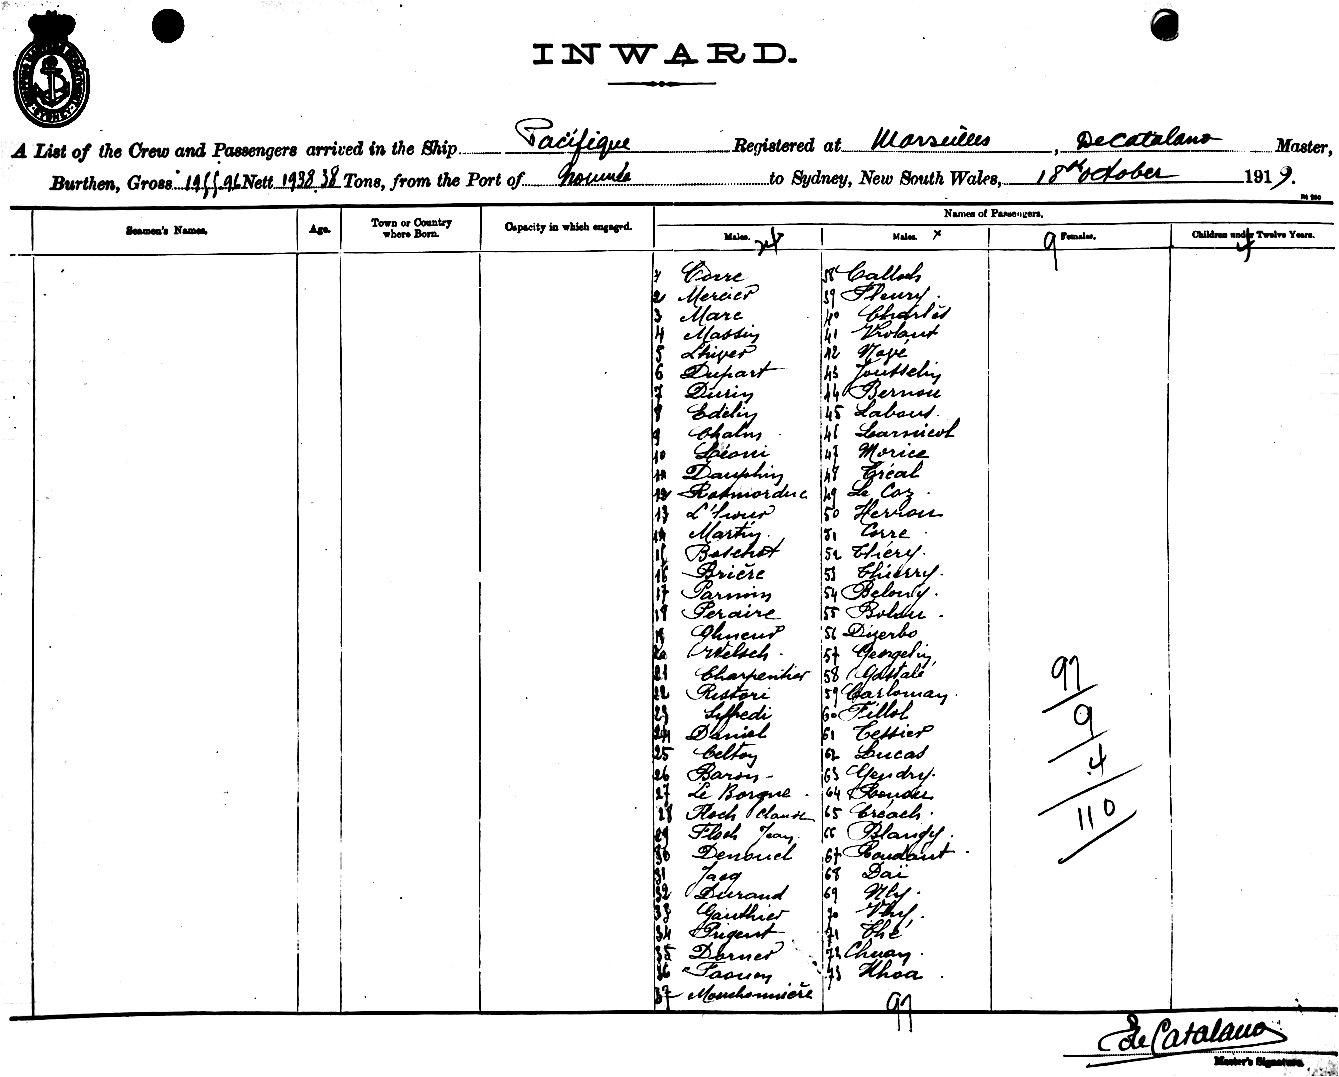 INWARD.
A List of the Crew and Passengers arrived in the Ship Pacifique Registered at Marseilles, De Catalano Master,
Burthen, Gross Nett 1938.38 Tons, from the Port of Nouméa to Sydney, New South Wales, 18th October 1919.
Names of Passengers.
Seamen's Names. Age. Town or Country where Born. Capacity in which engaged. Males. 24 Males. x 9 Females. Children under Twelve Years. 4
1 Corre 38 Calloch
2 Mercier 39 Fleury.
3 Marc 40 Charles
4 Massin 41 Violant
5 Lhiver 42 Noyé
6 Dupart 43 Jousselin
7 Durin 44 Bernou
8 Edelin 45 Labous.
9 Chalm 46 Larnicol
10 Léoni 47 Morice
11 Dauphin 48 Tréal
12 Rosmorduc 49 Le Coz.
13 50 Herrou
14 Martin. 51 Corre.
15 Boschat 52 Thiery.
16 Brière 53 Thierry.
17 Parmin 54
18 Peraire 55
19 56 Dizerbo
20 Welsch. 57 Georgelin,
21 Charpentier 58
22 Ristori 59 Carloman.
23 Siffredi 60 Fillol
24 Daniel 61 Tessier
25 Celton 62 Lucas
26 Baron- 63 Gendry.
27 Le Borgne. 64
28 Floch Claude 65 Créach.
29 Floch Jean. 66 Blangy.
30 Denouel 67 Coudant.
31 Jacq 68 Daï
32 Durand 69 Nly.
33 Gauthier 70
34 Prigent 71 Thé
35 Dorner 72 Chuan.
36 Faouen 73 Khoa.
37 Mouchonnière
97
97
9
4
110
De Catalano
Master's Signature.